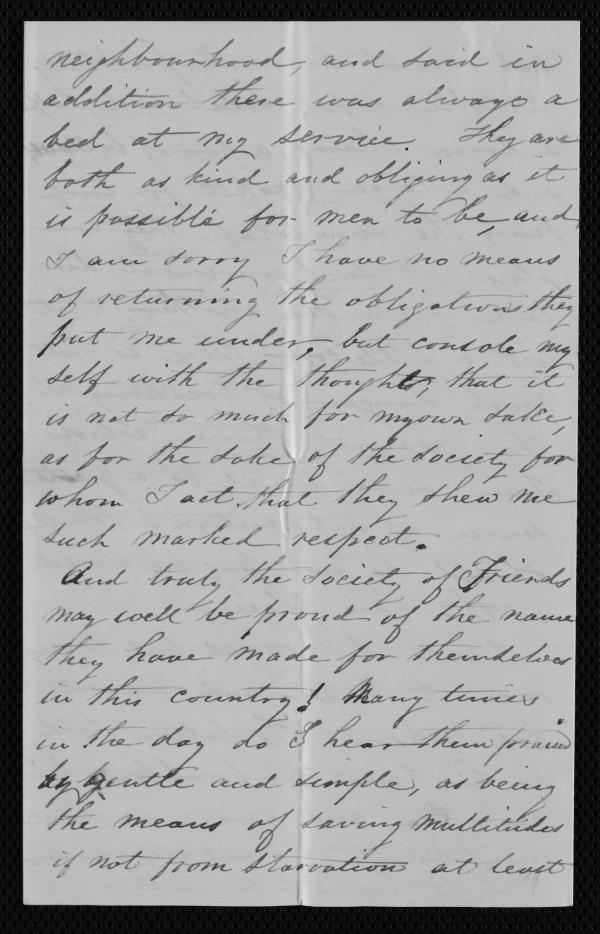 neighbourhood, and said in
addition there was always a
bed at my service. They are
both as kind and obliging as it
is possible for men to be, and
I am sorry I have no means
of returning the obligations they
put me under, but console my
self with the thought, that it
is not so much for my own sake,
as for the sake of the society for
whom I act, that they shew me
such marked respect.
And truly the Society of Friends
may well be proud of the name
they have made for themselves
in this country! Many times
in the day do I hear them praised
by gentle and simple, as being
the means of saving multitudes
if not from starvation at least